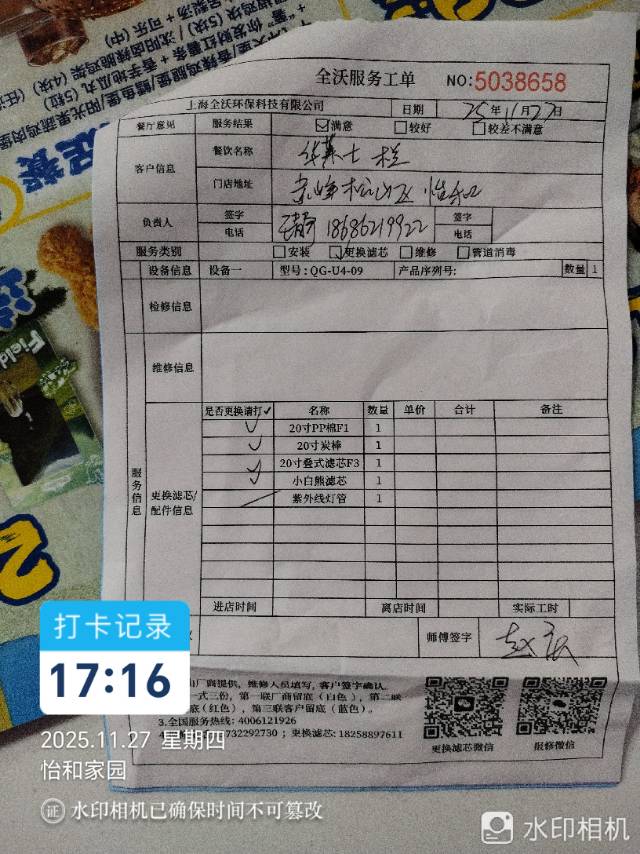 全沃服务工单 NO:5038658
上海全沃环保科技有限公司 日期 25年11月27日
餐厅意见 服务结果 ☑满意 □较好 □较差不满意
客户信息 餐饮名称 华莱士
门店地址 怡和
负责人 签字 签字
电话 18686219922 电话
服务类别 □安装 ☑更换滤芯 □维修 □管道消毒
设备信息 设备一 型号:QG-U4-09 产品序列号: 数量 1
检修信息
维修信息
服务信息
更换滤芯/配件信息
是否更换请打✓ 名称 数量 单价 合计 备注
✓ 20寸PP棉F1 1
✓ 20寸炭棒 1
✓ 20寸叠式滤芯F3 1
✓ 小白熊滤芯 1
紫外线灯管 1
进店时间 离店时间 实际工时
师傅签字
厂商提供, 维修人员填写, 客户签字确认.
一式三份, 第一联厂商留底(白色), 第二联
底(红色), 第三联客户留底(蓝色).
3.全国服务热线: 4006121926
732292730 ; 更换滤芯: 18258897611
更换滤芯微信 报修微信
打卡记录
17:16
2025.11.27 星期四
怡和家园
证 水印相机已确保时间不可篡改
水印相机
Field